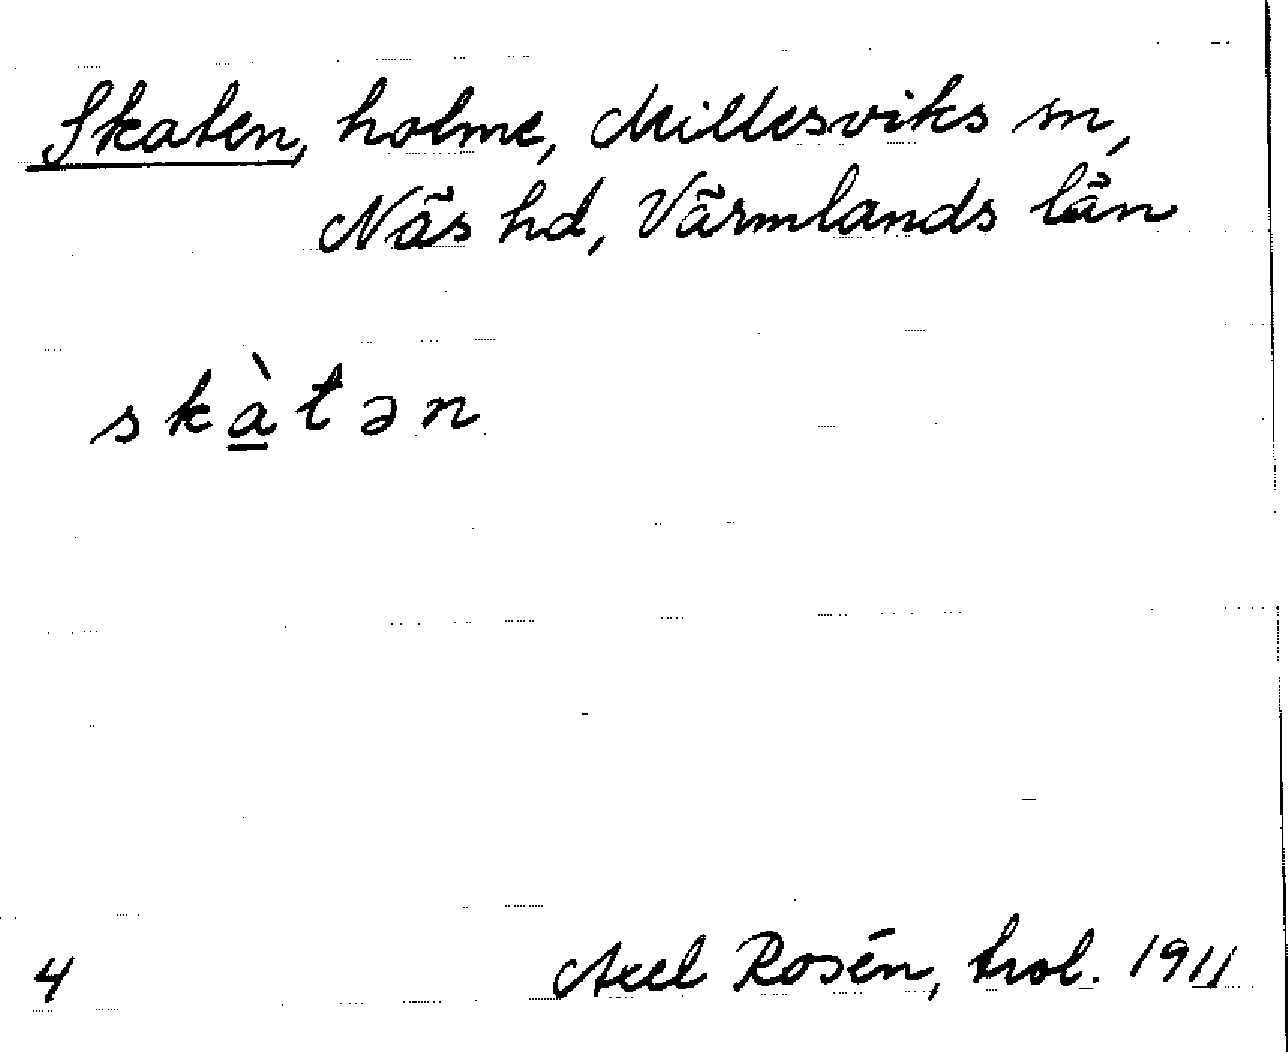 Skaten, holme, Millesviks sn,
Näs hd, Värmlands län
skà̱tən
4
Axel Rosén, trol. 1911